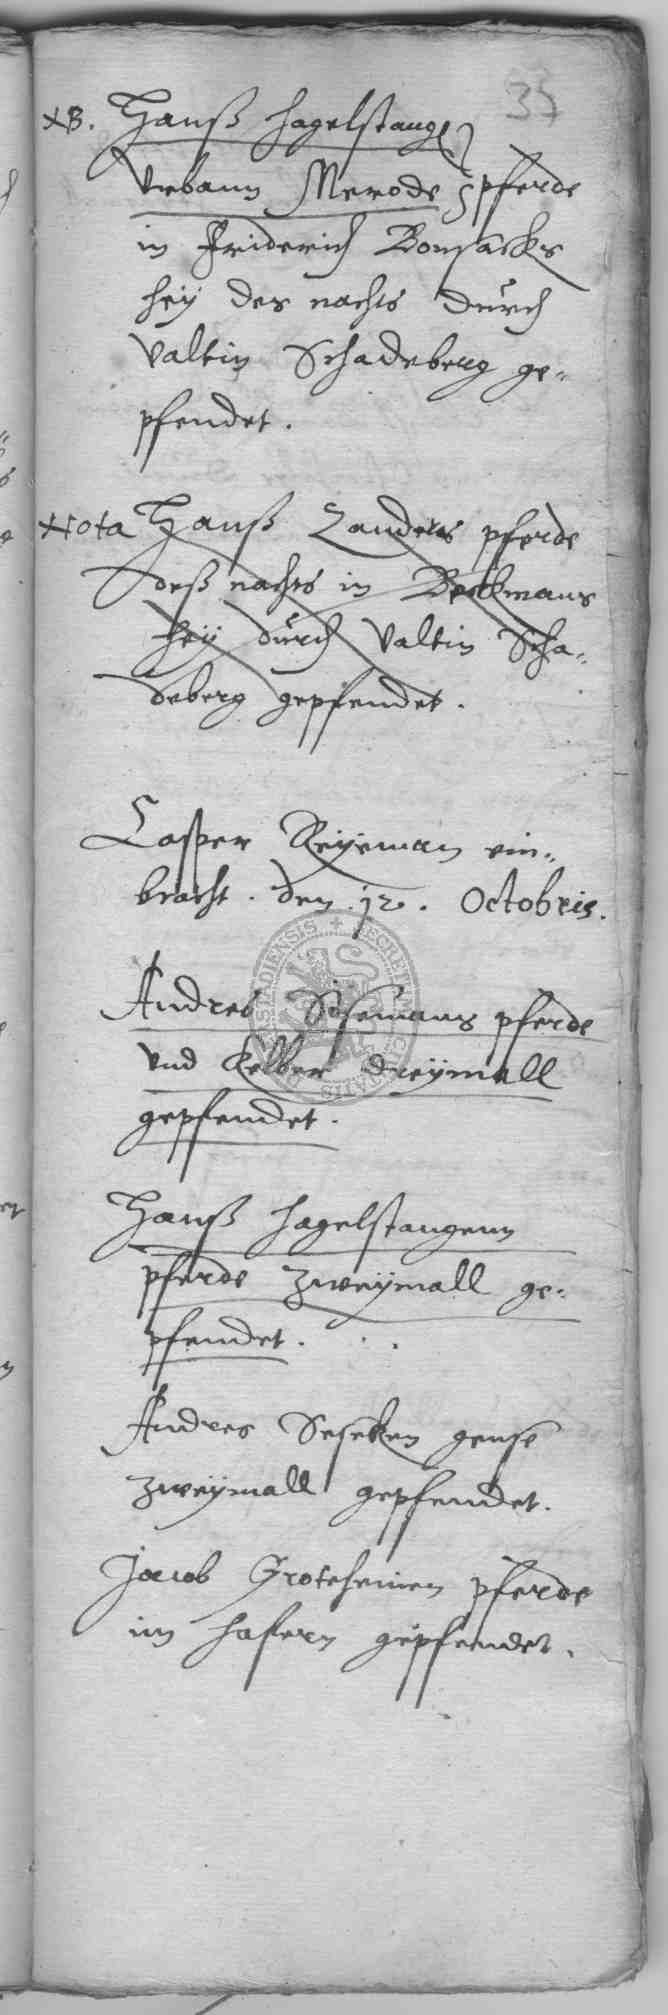 35
NB. Hanß Hagelstange
Urbann Merode pferde
in Friderich Bonsacks
hey des nachts durch
Valtin Schadeberg ge-
pfendet.
Nota Hanß Zanders pferde
deß nachts in Beckmans
hey durch Valtin Scha-
deberg gepfendet.
Casper Reyeman ein-
bracht. den 12. Octobris.
Andres Sisemans pferde
und Kelber dreymall
gepfendet.
Hanß Hagelstangenn
pferde zweymall ge-
pfendet.
Andres Seseken gense
zweymall gepfendet.
Jacob Grotehenien pferde
im hafern gepfendet.
SECRETUM CIVITATIS